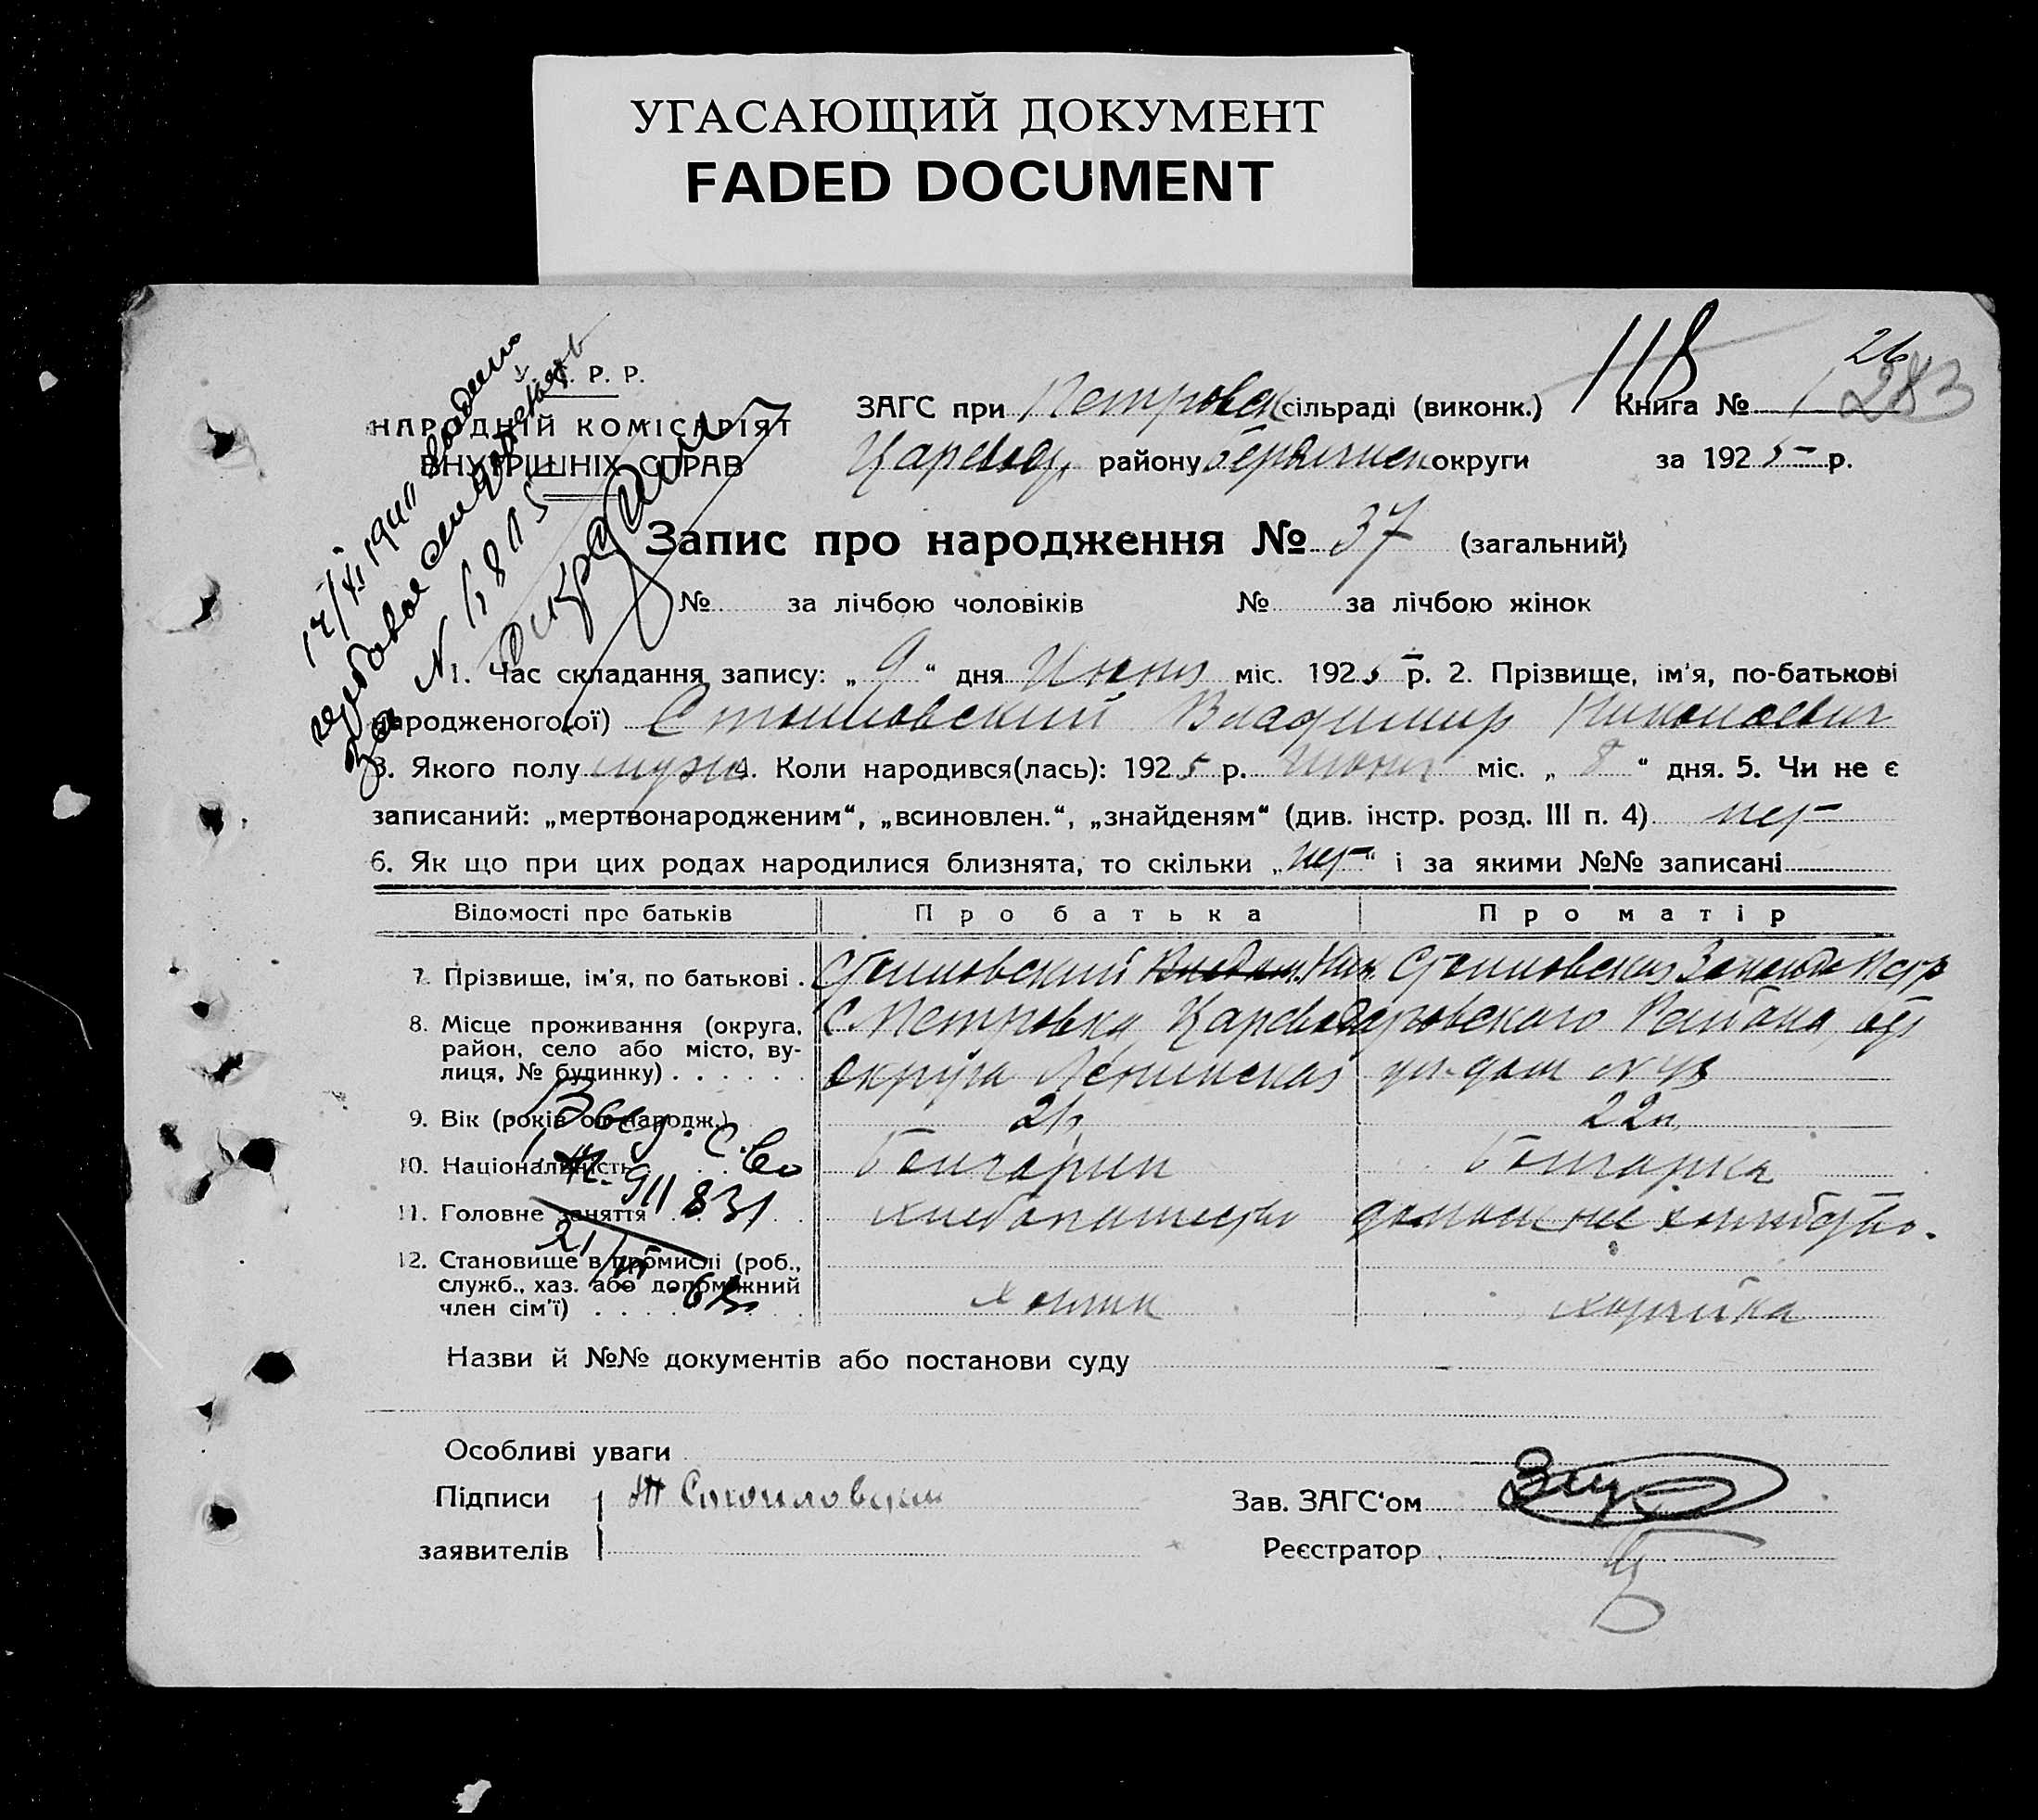 УГАСАЮЩИЙ ДОКУМЕНТ
FADED DOCUMENT
118
26
283
У. С. Р. Р.
НАРОДНІЙ КОМІСАРІЯТ
ВНУТРІШНІХ СПРАВ
ЗАГС при Петровск сільраді (виконк.) Книга № 1
району округи за 1925 р.
Запис про народження № 37 (загальний)
№ за лічбою чоловіків № за лічбою жінок
1. Час складання запису: „ 9 “ дня Июня міс. 1925 р. 2. Прізвище, ім'я, по-батькові
народженого(ої) Стоиловский Владимир Николаевич
3. Якого полу муж 4. Коли народився(лась): 1925 р. Июня міс. „ 8 “ дня. 5. Чи не є
записаний: „мертвонародженим“, „всиновлен.“, „знайденям“ (див. інстр. розд. III п. 4) нет
6. Як що при цих родах народилися близнята, то скільки „ нет “ і за якими №№ записані
Відомості про батьків Про батька Про матір
7. Прізвище, ім'я, по батькові . Стоиловский Ник. Стоиловская
8. Місце проживання (округа, С. Петровка, Района,
район, село або місто, ву-
лиця, № будинку) . . . . . . округа ул. дом №
9. Вік (років од народж.) 21 22
10. Національність Болгарин Болгарка
11. Головне заняття хлебопашество
12. Становище в промислі (роб.,
служб., хаз. або допоміжний
член сім'ї) . . . . хозяин хозяйка
911831
Назви й №№ документів або постанови суду
Особливі уваги
Підписи Стоиловский Зав. ЗАГС‘ом
заявителів Реєстратор